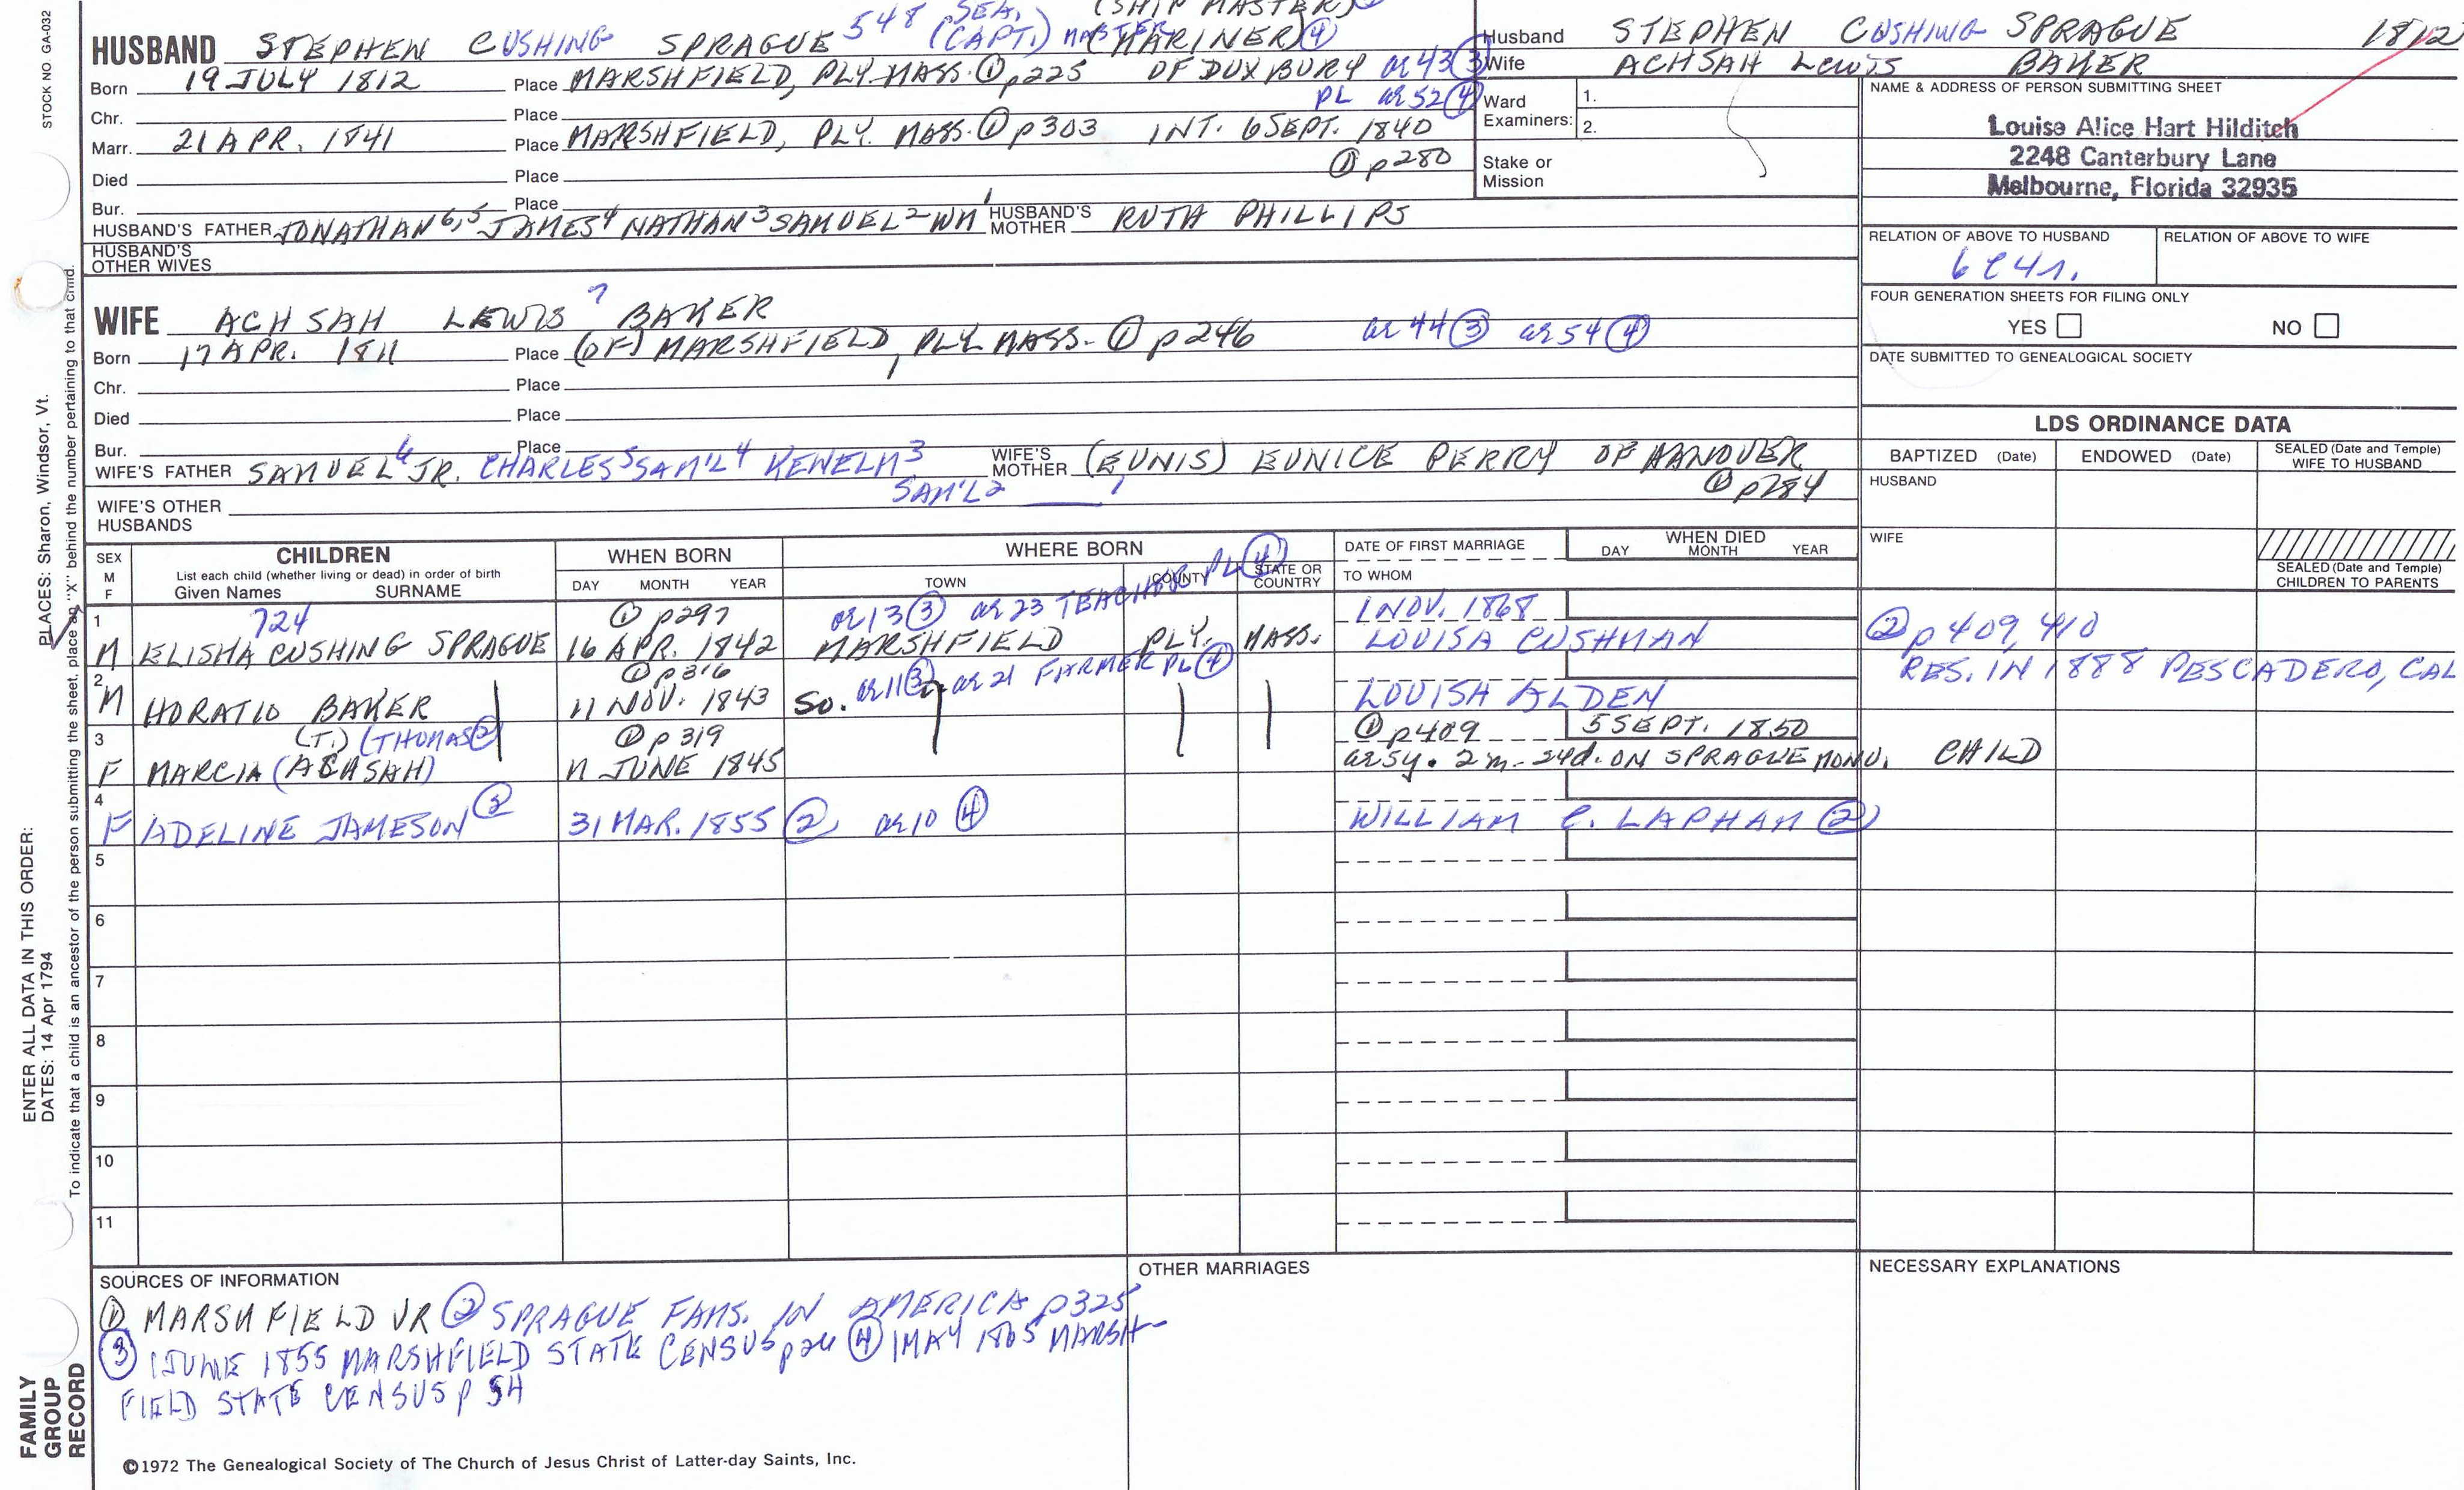 STOCK NO. GA-032
548 SEA. (SHIP MASTER)
HUSBAND STEPHEN CUSHING SPRAGUE (CAPT.) MASTER (MARINER) ④
Born 19 JULY 1812 Place MARSHFIELD, PLY. MASS. ① p225 OF DUXBURY ae 43 ③
PL ae 52 ④
Chr. Place
Marr. 21 APR. 1841 Place MARSHFIELD, PLY. MASS. ① p303 INT. 6 SEPT. 1840
① p280
Died Place
Bur. Place
HUSBAND'S FATHER JONATHAN 6,5 JAMES 4 NATHAN 3 SAMUEL 2 WM 1 HUSBAND'S MOTHER RUTH PHILLIPS
HUSBAND'S OTHER WIVES
Husband STEPHEN CUSHING SPRAGUE 1812
Wife ACHSAH LEWIS BAKER
Ward Examiners: 1.
2.
Stake or Mission
NAME & ADDRESS OF PERSON SUBMITTING SHEET
Louise Alice Hart Hilditch
2248 Canterbury Lane
Melbourne, Florida 32935
RELATION OF ABOVE TO HUSBAND RELATION OF ABOVE TO WIFE
6C4r.
FOUR GENERATION SHEETS FOR FILING ONLY
YES NO
DATE SUBMITTED TO GENEALOGICAL SOCIETY
WIFE ACHSAH LEWIS 7 BAKER
Born 17 APR. 1811 Place (OF) MARSHFIELD, PLY. MASS. ① p246 ae 44 ③ ae 54 ④
Chr. Place
Died Place
Bur. Place
WIFE'S FATHER SAMUEL 6 JR. CHARLES 5 SAM'L 4 KENELM 3 WIFE'S MOTHER (EUNIS) EUNICE PERRY OF HANOVER
SAM'L 2 1 ① p284
WIFE'S OTHER HUSBANDS
LDS ORDINANCE DATA
BAPTIZED (Date) ENDOWED (Date) SEALED (Date and Temple) WIFE TO HUSBAND
HUSBAND
WIFE
SEALED (Date and Temple) CHILDREN TO PARENTS
SEX M F
CHILDREN
List each child (whether living or dead) in order of birth
Given Names SURNAME
WHEN BORN
DAY MONTH YEAR
WHERE BORN
TOWN COUNTY STATE OR COUNTRY
DATE OF FIRST MARRIAGE
TO WHOM
WHEN DIED
DAY MONTH YEAR
1 724 ① p297 ae 13 ③ ae 23 TEACHER PL ④ 1 NOV. 1868
M ELISHA CUSHING SPRAGUE 16 APR. 1842 MARSHFIELD PLY. MASS. LOUISA CUSHMAN ② p409, 410
RES. IN 1888 PESCADERO, CAL
2 ① p316 ae 11 ③ ae 21 FARMER PL ④
M HORATIO BAKER 11 NOV. 1843 So. LOUISA ALDEN
3 (T.) (THOMAS ②) ① p319 ① p409 5 SEPT. 1850
F MARCIA (ACHSAH) 11 JUNE 1845 ae 5y. 2m. 24d. ON SPRAGUE MONU. CHILD
4
F ADELINE JAMESON ③ 31 MAR. 1855 ② ae 10 ④ WILLIAM C. LAPHAM ②
5
6
7
8
9
10
11
SOURCES OF INFORMATION
① MARSHFIELD VR ② SPRAGUE FAMS. IN AMERICA p325
③ 1 JUNE 1855 MARSHFIELD STATE CENSUS p24 ④ 1 MAY 1865 MARSH-
FIELD STATE CENSUS p 54
OTHER MARRIAGES
NECESSARY EXPLANATIONS
©1972 The Genealogical Society of The Church of Jesus Christ of Latter-day Saints, Inc.
ENTER ALL DATA IN THIS ORDER:
DATES: 14 Apr 1794
PLACES: Sharon, Windsor, Vt.
To indicate that a child is an ancestor of the person submitting the sheet, place an "X" behind the number pertaining to that child.
FAMILY GROUP RECORD